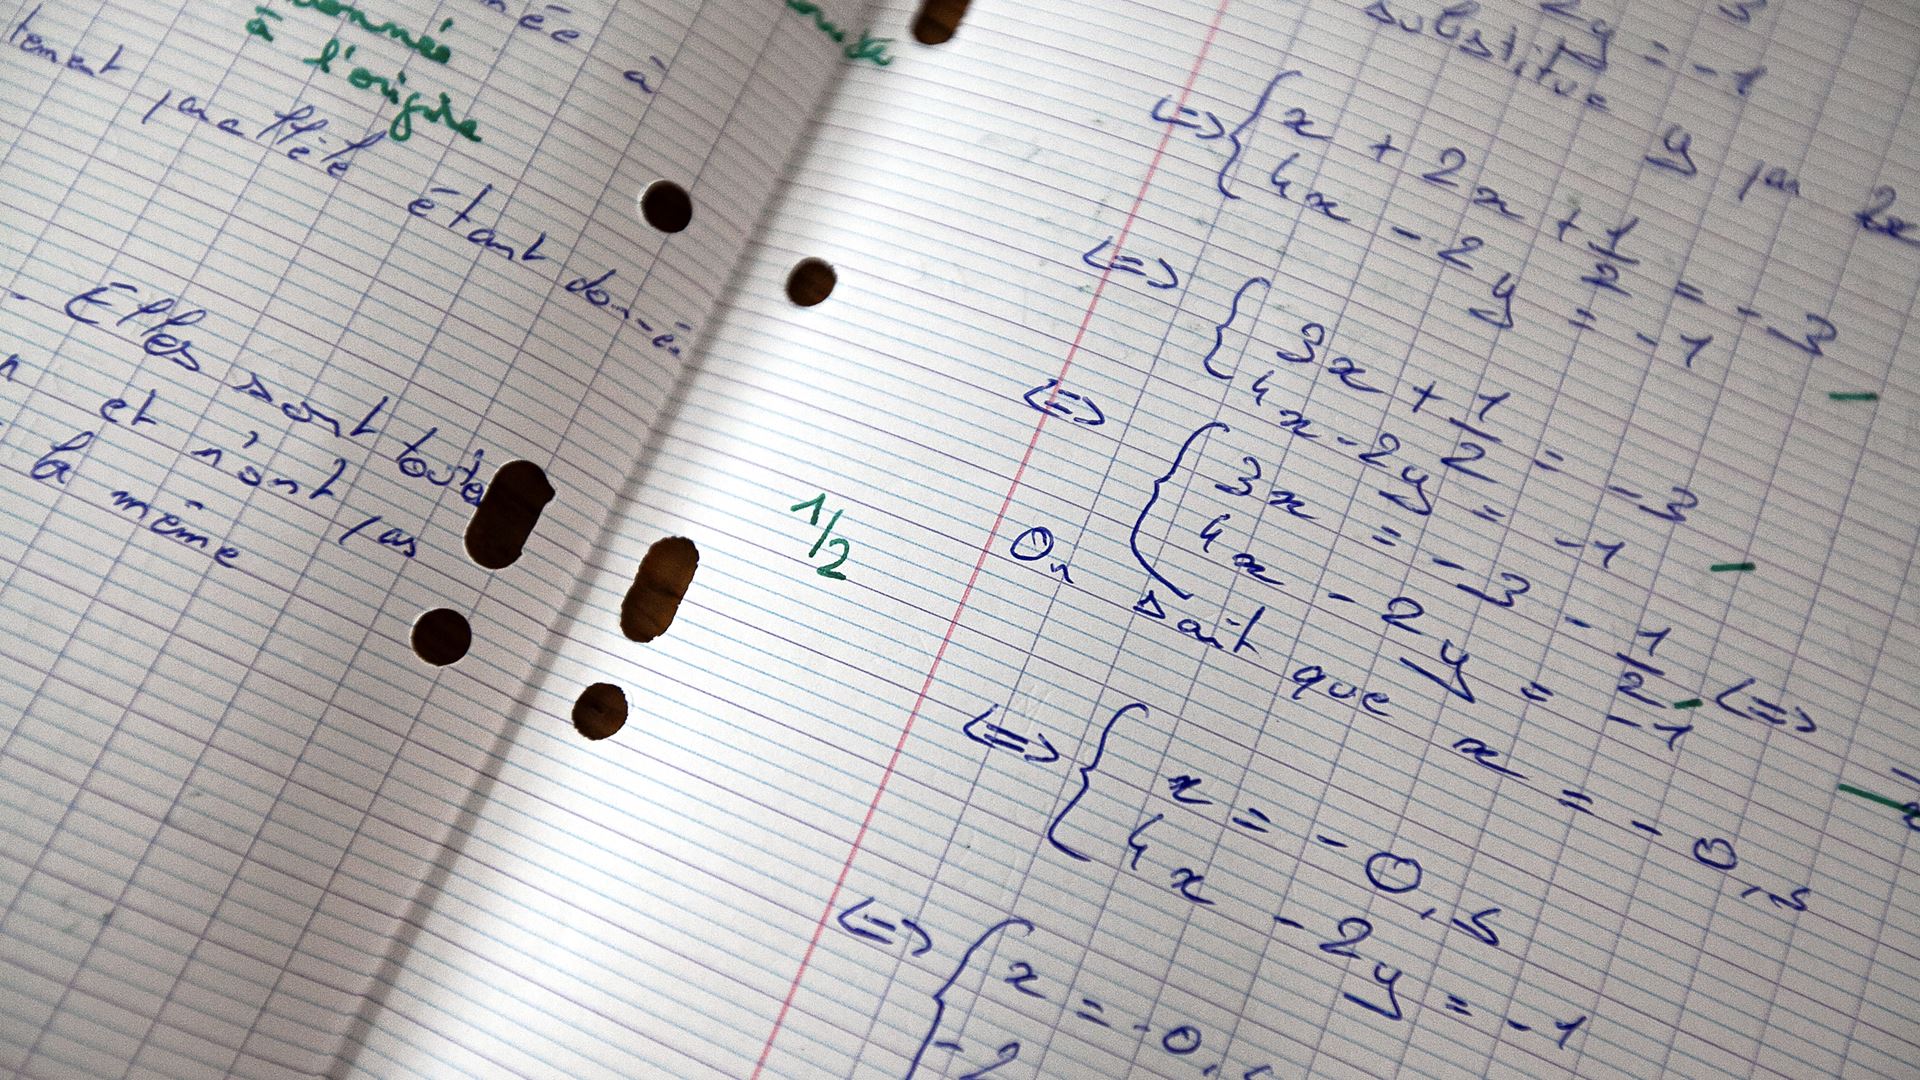 onnée
à l'origine
née à
tement parallèle étant donné
- Elles sont toutes
et n'ont pas
la même
1/2
2y = -1
substitue y par 2x
<=> { x + 2x + 1/2 = -3
4x - 2y = -1
<=> { 3x + 1/2 = -3
4x - 2y = -1
<=> { 3x = -3 - 1/2 <=>
4x - 2y = -1
On sait que x = -0,5
<=> { x = -0,5
4x - 2y = -1
<=> { x = -0,
-2